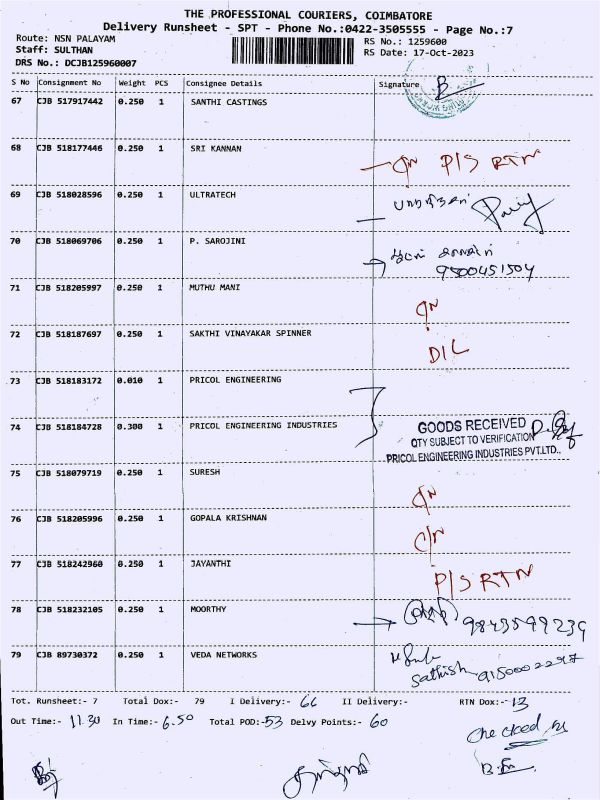 THE PROFESSIONAL COURIERS, COIMBATORE
Delivery Runsheet - SPT - Phone No.:0422-3505555 - Page No.:7
Route: NSN PALAYAM RS No.: 1259600
Staff: SULTHAN RS Date: 17-Oct-2023
DRS No.: DCJB125960007
S No Consignment No Weight PCS Consignee Details Signature
67 CJB 517917442 0.250 1 SANTHI CASTINGS
68 CJB 518177446 0.250 1 SRI KANNAN P/S RTN
69 CJB 518028596 0.250 1 ULTRATECH
70 CJB 518069706 0.250 1 P. SAROJINI
9500451504
71 CJB 518205997 0.250 1 MUTHU MANI
72 CJB 518187697 0.250 1 SAKTHI VINAYAKAR SPINNER D/L
73 CJB 518183172 0.010 1 PRICOL ENGINEERING
74 CJB 518184728 0.300 1 PRICOL ENGINEERING INDUSTRIES GOODS RECEIVED
QTY SUBJECT TO VERIFICATION
PRICOL ENGINEERING INDUSTRIES PVT.LTD..
75 CJB 518079719 0.250 1 SURESH
76 CJB 518205996 0.250 1 GOPALA KRISHNAN
77 CJB 518242960 0.250 1 JAYANTHI P/S RTN
78 CJB 518232105 0.250 1 MOORTHY 9843599239
79 CJB 89730372 0.250 1 VEDA NETWORKS
Sathish
Tot. Runsheet:- 7 Total Dox:- 79 I Delivery:- 66 II Delivery:- RTN Dox:- 13
Out Time:- 11.30 In Time:- 6.50 Total POD:- 53 Delvy Points:- 60
Checked by